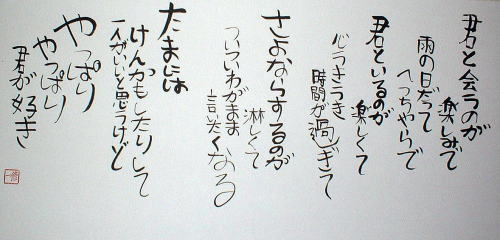 君と会うのが
楽しみで
雨の日だって
へっちゃらで
君といるのが
楽しくて
心うきうき
時間が過ぎて
さよならするのが
淋しくて
ついついわがまま
言いたくなる
たまには
けんかもしたりして
一人がいいと思うけど
やっぱり
やっぱり
君が好き